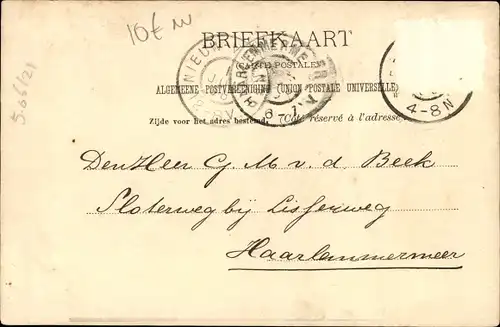 10€
BRIEFKAART
(CARTE POSTALE)
ALGEMEENE POSTVEREENIGING (UNION POSTALE UNIVERSELLE)
HAARLEMMERMEER
4-8N
Zijde voor het adres bestemd. (Côté réservé à l'adresse)
Den Heer G. M. v. d. Beek
Sloterweg bij Lisserweg
Haarlemmermeer